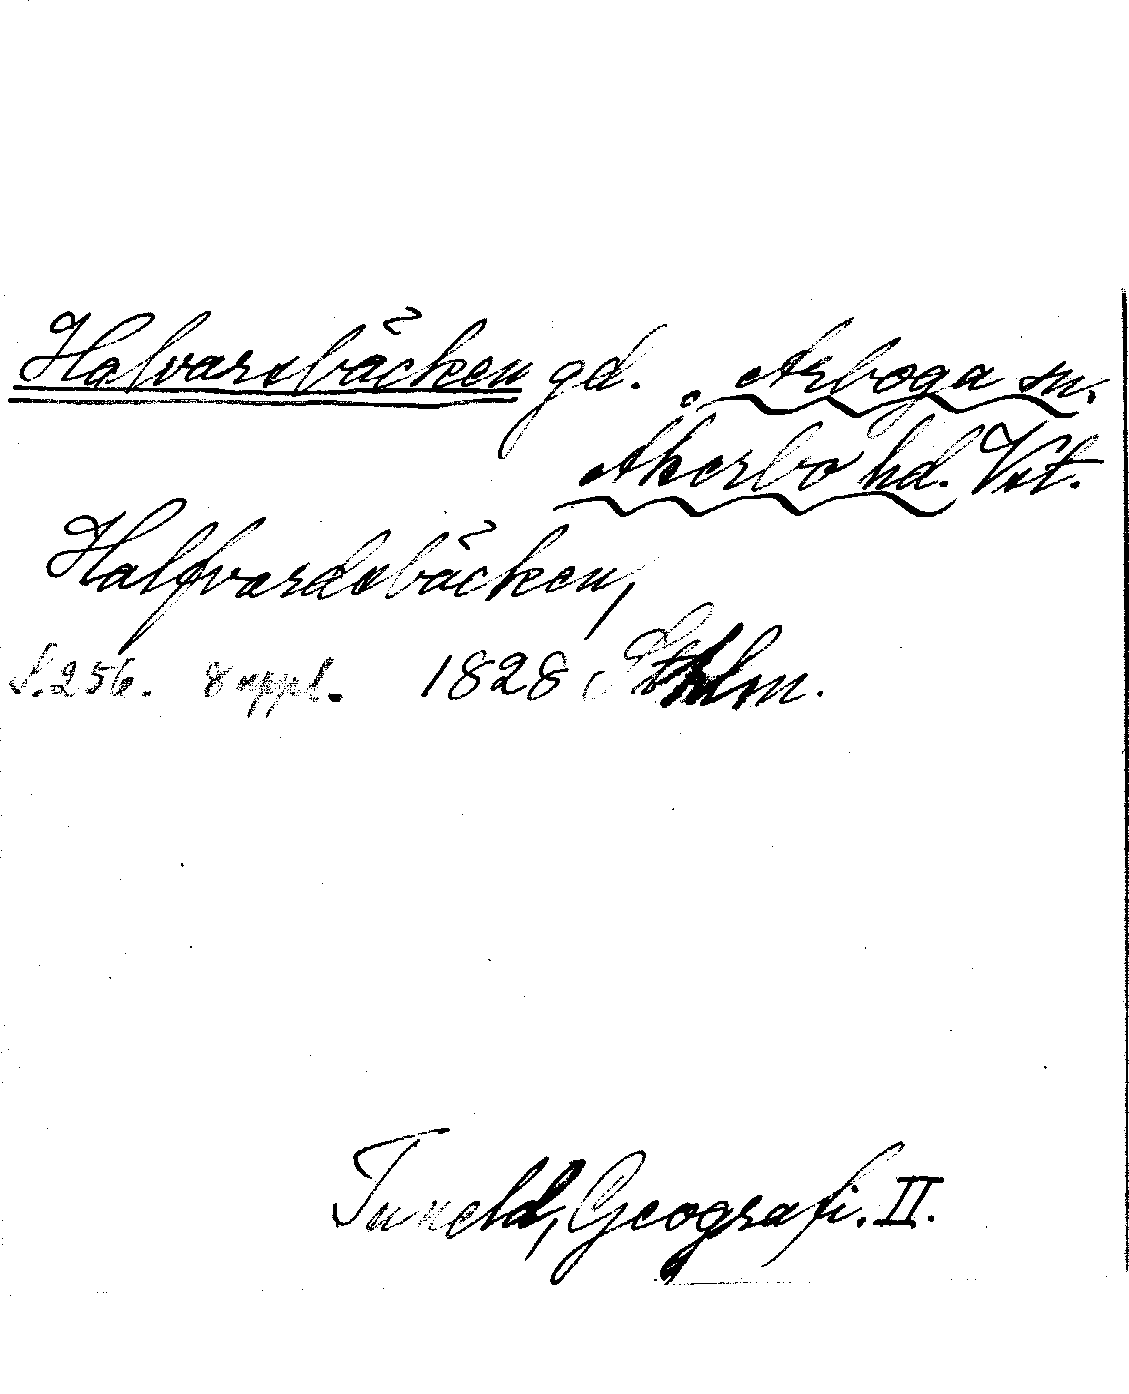 Halvarsbäcken gd. Arboga sn.
Åkerbo hd. Vst.
Halfvardsbäcken,
S. 256. 8 uppl. 1828 Sthlm.
Tuneld, Geografi. II.